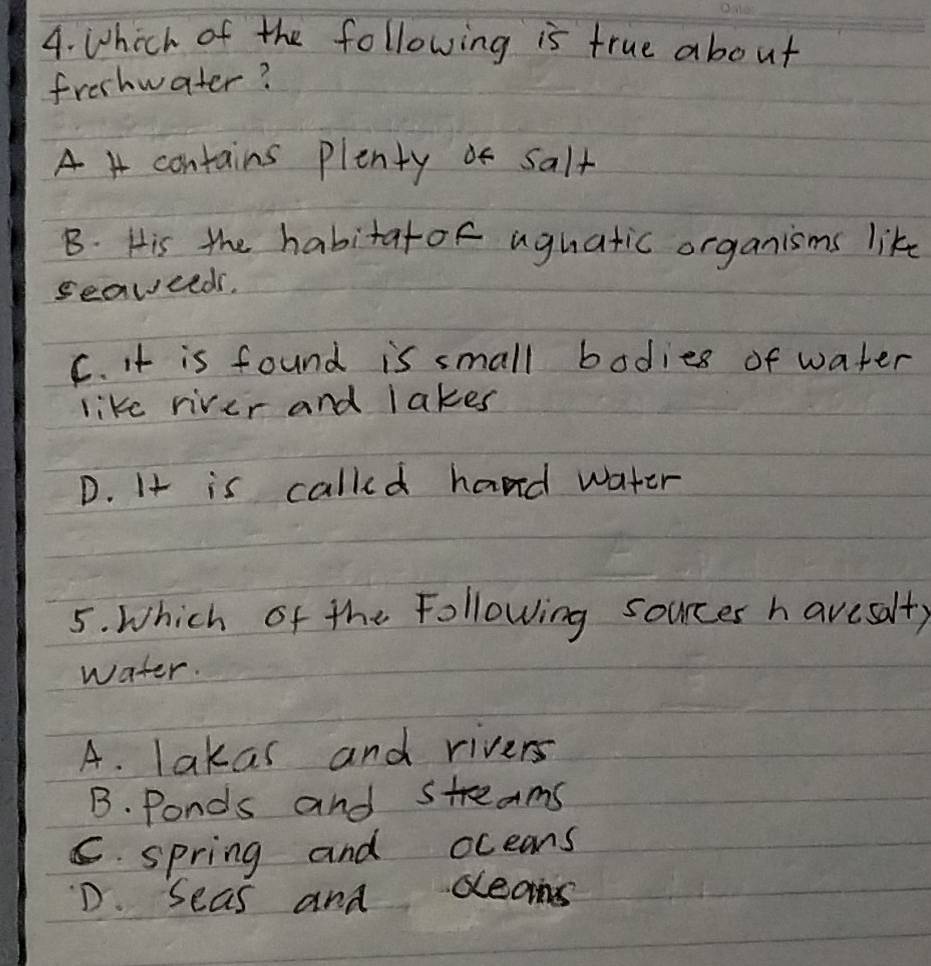 4. Which of the following is true about
freshwater?
A It contains Plenty of salt
B. It is the habitat of aquatic organisms like
seaweeds.
C. it is found is small bodies of water
like river and lakes
D. It is called hard water
5. Which of the Following sources have salty
water.
A. lakas and rivers
B. Ponds and streams
C. spring and oceans
D. Seas and oceans